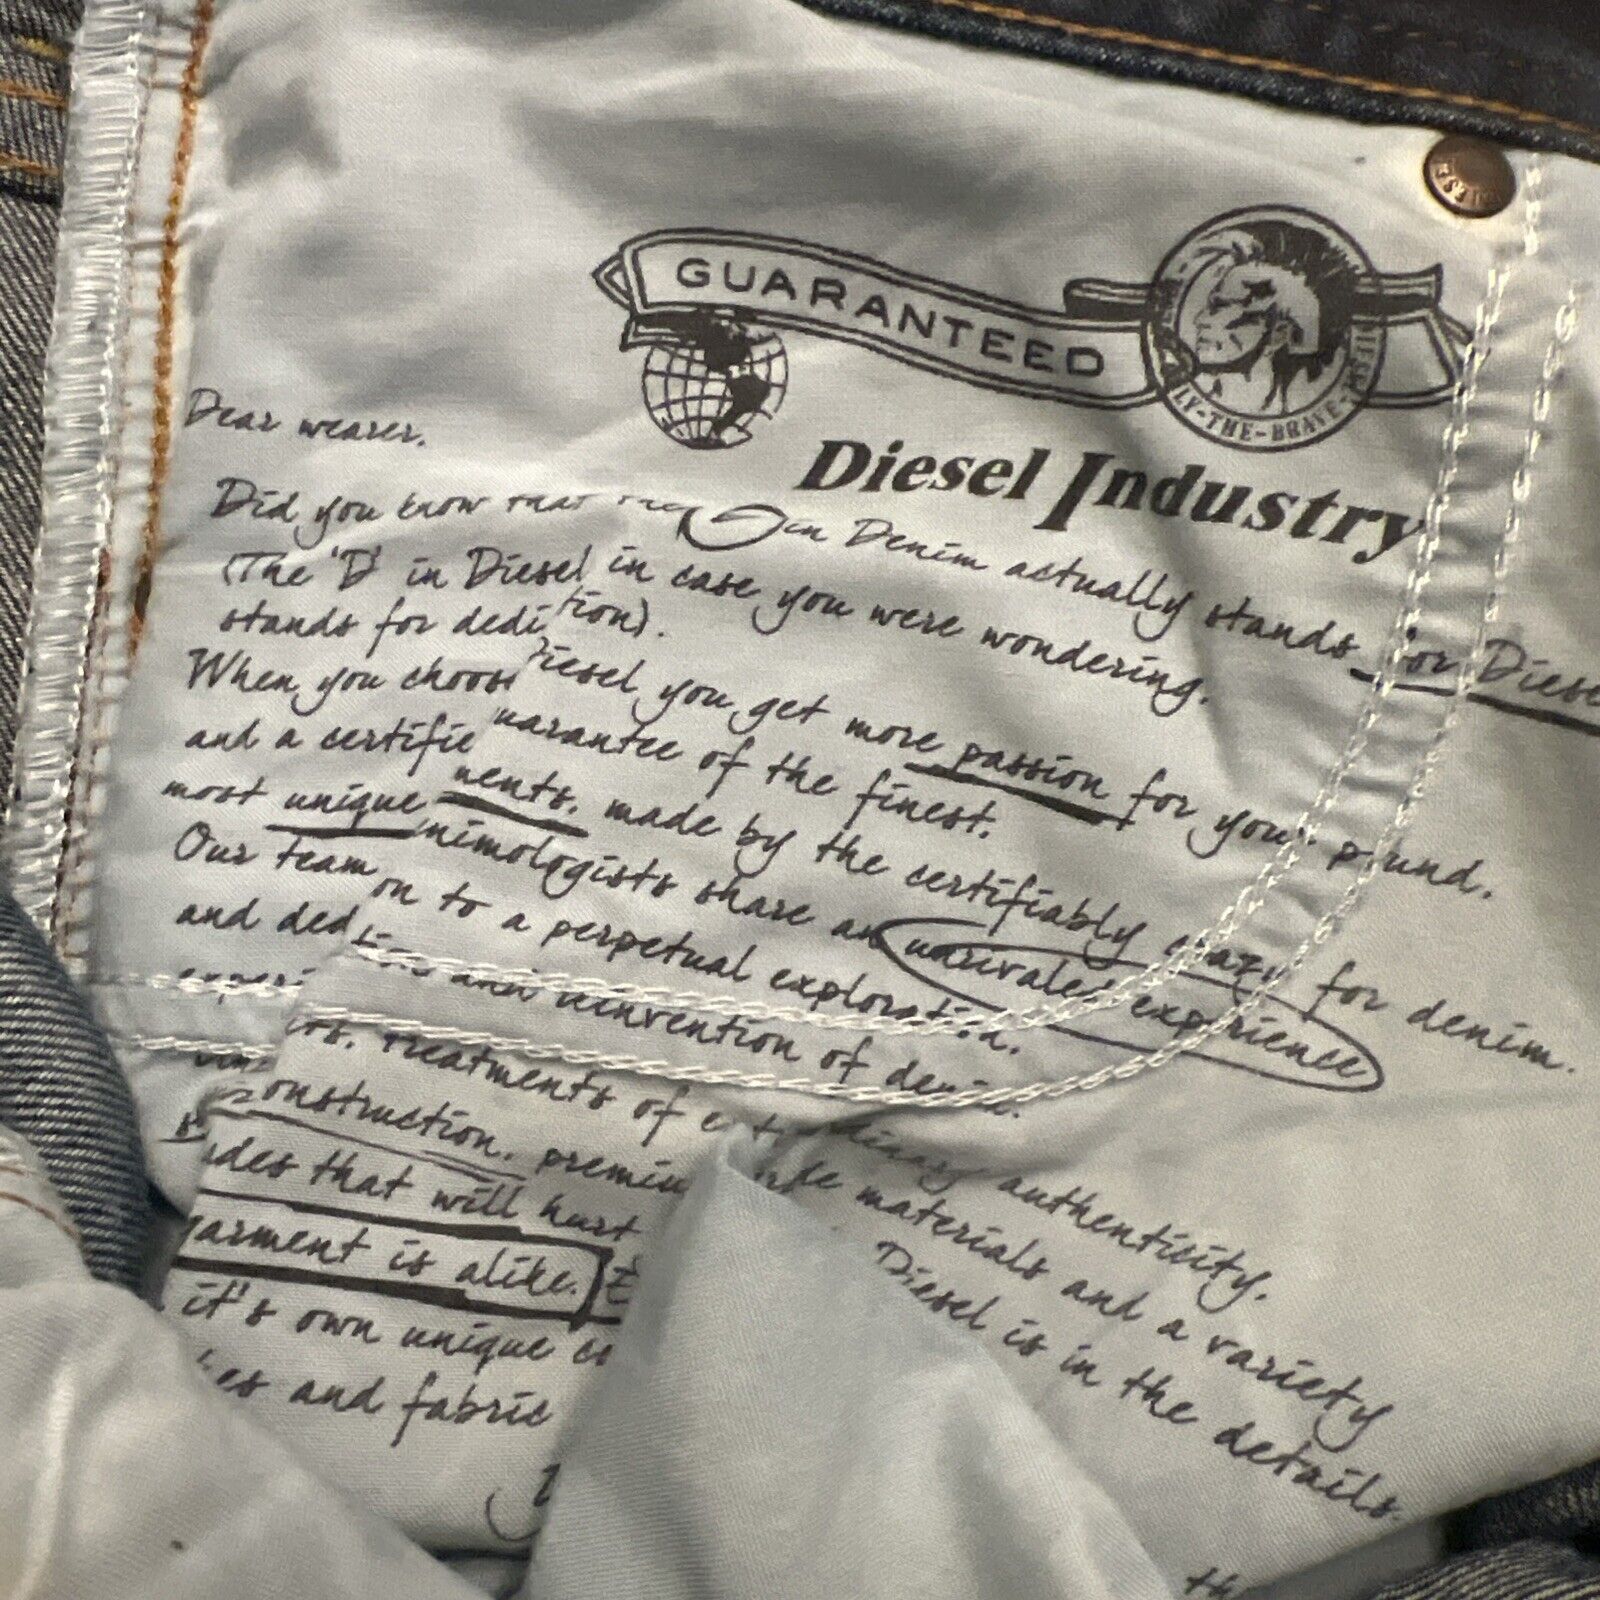 DIESEL
GUARANTEED
ONLY-THE-BRAVE-DIESEL
Diesel Industry
Dear wearer.
Did you know that the in Denim actually stands for Diesel
(The 'D' in Diesel in case you were wondering.
stands for dedi tion).
When you choose iesel you get more passion for your pound.
and a certifie uarantee of the finest.
most unique ments. made by the certifiably crazy for denim.
Our team nimologists share an unrivaled experience
and ded on to a perpetual exploration.
experi and reinvention of denim.
treatments of extraordinary authenticity.
onstruction. premium materials and a variety
des that will hurt Diesel is in the details.
garment is alike.
it's own unique co
es and fabric